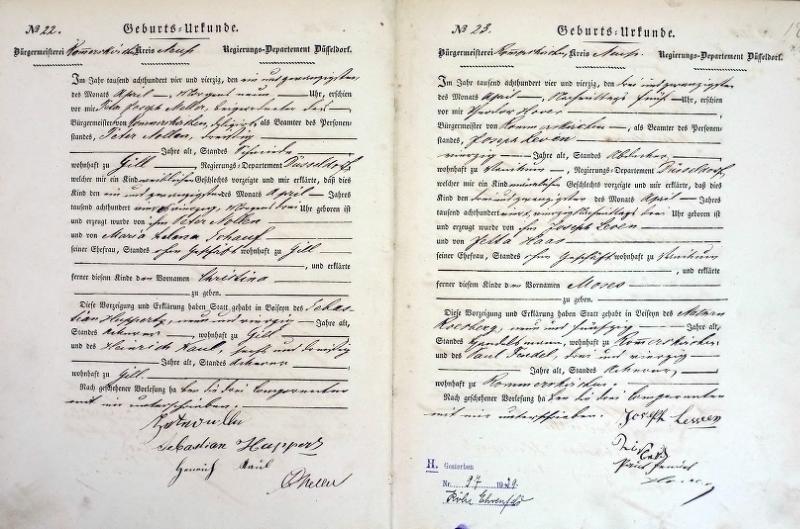 № 22. Geburts-Urkunde.
Bürgermeisterei Kreis Neuß Regierungs-Departement Düsseldorf.
Im Jahr tausend achthundert vier und vierzig, den ein und zwanzigsten
des Monats April Morgens neun Uhr, erschien
vor mir Peter Joseph Beigeordneter des
Bürgermeister von Rommerskirchen, als Beamter des Personen-
standes, Peter
Jahre alt, Standes
wohnhaft zu Gill, Regierungs-Departement Düsseldorf,
welcher mir ein Kind weiblichen Geschlechts vorzeigte und mir erklärte, daß dies
Kind den ein und zwanzigsten des Monats April Jahres
tausend achthundert vier und vierzig, Morgens drei Uhr geboren ist
und erzeugt wurde von ihm Peter
und von Maria Helena Schauf
seiner Ehefrau, Standes ohne Geschäft wohnhaft zu Gill
, und erklärte
ferner diesem Kinde den Vornamen Christina
zu geben.
Diese Vorzeigung und Erklärung haben Statt gehabt in Beiseyn des Sebas-
tian Huppertz, neun und vierzig Jahre alt,
Standes Ackerer, wohnhaft zu Gill
und des Heinrich Kaul, sechs und dreißig
Jahre alt, Standes Ackerer
wohnhaft zu Gill
Nach geschehener Vorlesung haben die drei Comparenten
mit mir unterschrieben.
Sebastian Huppertz
Henrich Kaul
№ 23. Geburts-Urkunde.
Bürgermeisterei Rommerskirchen, Kreis Neuß, Regierungs-Departement Düsseldorf.
Im Jahr tausend achthundert vier und vierzig, den drei und zwanzigsten
des Monats April, Nachmittags fünf Uhr, erschien
vor mir Theodor
Bürgermeister von Rommerskirchen, als Beamter des Personen-
standes, Joseph Leven
vierzig Jahre alt, Standes
wohnhaft zu, Regierungs-Departement Düsseldorf,
welcher mir ein Kind männlichen Geschlechts vorzeigte und mir erklärte, daß dies
Kind den drei und zwanzigsten des Monats April Jahres
tausend achthundert vier und vierzig Nachmittags drei Uhr geboren ist
und erzeugt wurde von ihm Joseph Leven
und von Jetta Haas
seiner Ehefrau, Standes ohne Geschäft wohnhaft zu
, und erklärte
ferner diesem Kinde den Vornamen Moses
zu geben.
Diese Vorzeigung und Erklärung haben Statt gehabt in Beiseyn des Nathan
neun und fünfzig Jahre alt,
Standes Handelsmann, wohnhaft zu Rommerskirchen
und des Paul drei und vierzig
Jahre alt, Standes Ackerer,
wohnhaft zu Rommerskirchen
Nach geschehener Vorlesung haben die drei Comparenten
mit mir unterschrieben.
Joseph
Paul
H. Gestorben
Nr. 97 1929.
Köln Ehrenfeld